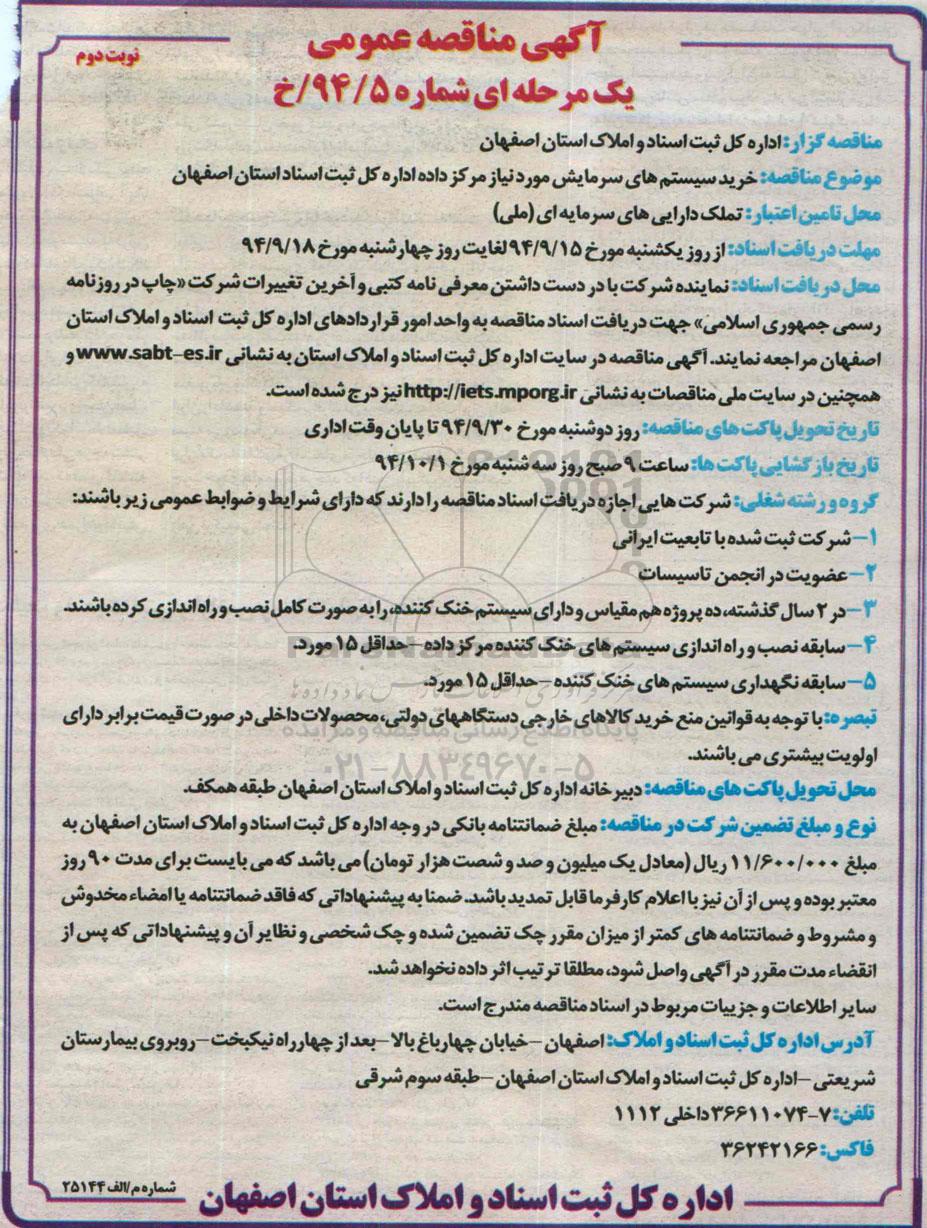 آگهی مناقصه عمومی
نوبت دوم
یک مرحله ای شماره ۹۴/۵/خ
مناقصه گزار: اداره کل ثبت اسناد و املاک استان اصفهان
موضوع مناقصه: خرید سیستم های سرمایش مورد نیاز مرکز داده اداره کل ثبت اسناد استان اصفهان
محل تامین اعتبار: تملک دارایی های سرمایه ای (ملی)
مهلت دریافت اسناد: از روز یکشنبه مورخ ۹۴/۹/۱۵ لغایت روز چهارشنبه مورخ ۹۴/۹/۱۸
محل دریافت اسناد: نماینده شرکت با در دست داشتن معرفی نامه کتبی و آخرین تغییرات شرکت «چاپ در روزنامه
رسمی جمهوری اسلامی» جهت دریافت اسناد مناقصه به واحد امور قراردادهای اداره کل ثبت اسناد و املاک استان
اصفهان مراجعه نمایند. آگهی مناقصه در سایت اداره کل ثبت اسناد و املاک استان به نشانی www.sabt-es.ir و
همچنین در سایت ملی مناقصات به نشانی http://iets.mporg.ir نیز درج شده است.
تاریخ تحویل پاکت های مناقصه: روز دوشنبه مورخ ۹۴/۹/۳۰ تا پایان وقت اداری
تاریخ بازگشایی پاکت ها: ساعت ۹ صبح روز سه شنبه مورخ ۹۴/۱۰/۱
گروه و رشته شغلی: شرکت هایی اجازه دریافت اسناد مناقصه را دارند که دارای شرایط و ضوابط عمومی زیر باشند:
۱- شرکت ثبت شده با تابعیت ایرانی
۲- عضویت در انجمن تاسیسات
۳- در ۲ سال گذشته، ده پروژه هم مقیاس و دارای سیستم خنک کننده، را به صورت کامل نصب و راه اندازی کرده باشند.
۴- سابقه نصب و راه اندازی سیستم های خنک کننده مرکز داده - حداقل ۱۵ مورد.
ParsNamadData
۵- سابقه نگهداری سیستم های خنک کننده - حداقل ۱۵ مورد.
تبصره: با توجه به قوانین منع خرید کالاهای خارجی دستگاههای دولتی، محصولات داخلی در صورت قیمت برابر دارای
پایگاه اطلاع رسانی مناقصه و مزایده
اولویت بیشتری می باشند.
۰۲۱-۸۸۳۴۹۶۷۰-۵
محل تحویل پاکت های مناقصه: دبیرخانه اداره کل ثبت اسناد و املاک استان اصفهان طبقه همکف.
نوع و مبلغ تضمین شرکت در مناقصه: مبلغ ضمانتنامه بانکی در وجه اداره کل ثبت اسناد و املاک استان اصفهان به
مبلغ ۱۱/۶۰۰/۰۰۰ ریال (معادل یک میلیون و صد و شصت هزار تومان) می باشد که می بایست برای مدت ۹۰ روز
معتبر بوده و پس از آن نیز با اعلام کارفرما قابل تمدید باشد. ضمنا به پیشنهاداتی که فاقد ضمانتنامه یا امضاء مخدوش
و مشروط و ضمانتنامه های کمتر از میزان مقرر چک تضمین شده و چک شخصی و نظایر آن و پیشنهاداتی که پس از
انقضاء مدت مقرر در آگهی واصل شود، مطلقا ترتیب اثر داده نخواهد شد.
سایر اطلاعات و جزییات مربوط در اسناد مناقصه مندرج است.
آدرس اداره کل ثبت اسناد و املاک: اصفهان - خیابان چهارباغ بالا - بعد از چهارراه نیکبخت - روبروی بیمارستان
شریعتی - اداره کل ثبت اسناد و املاک استان اصفهان - طبقه سوم شرقی
تلفن: ۷-۳۶۶۱۱۰۷۴ داخلی ۱۱۱۲
فاکس: ۳۶۲۴۲۱۶۶
شماره م/الف ۲۵۱۴۴
اداره کل ثبت اسناد و املاک استان اصفهان